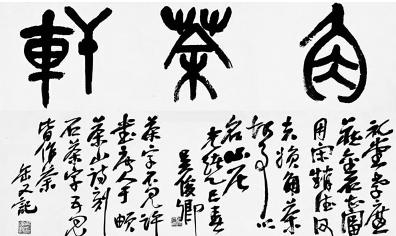 角茶軒
禮堂孝廉
藏金石甚富
用宋趙德父
夫婦角茶
趣事以
名山居
光緒乙巳春
吳俊卿
茶字不見許
書唐人于頔
茶山詩刻
石茶字五見
皆作荼
缶又記